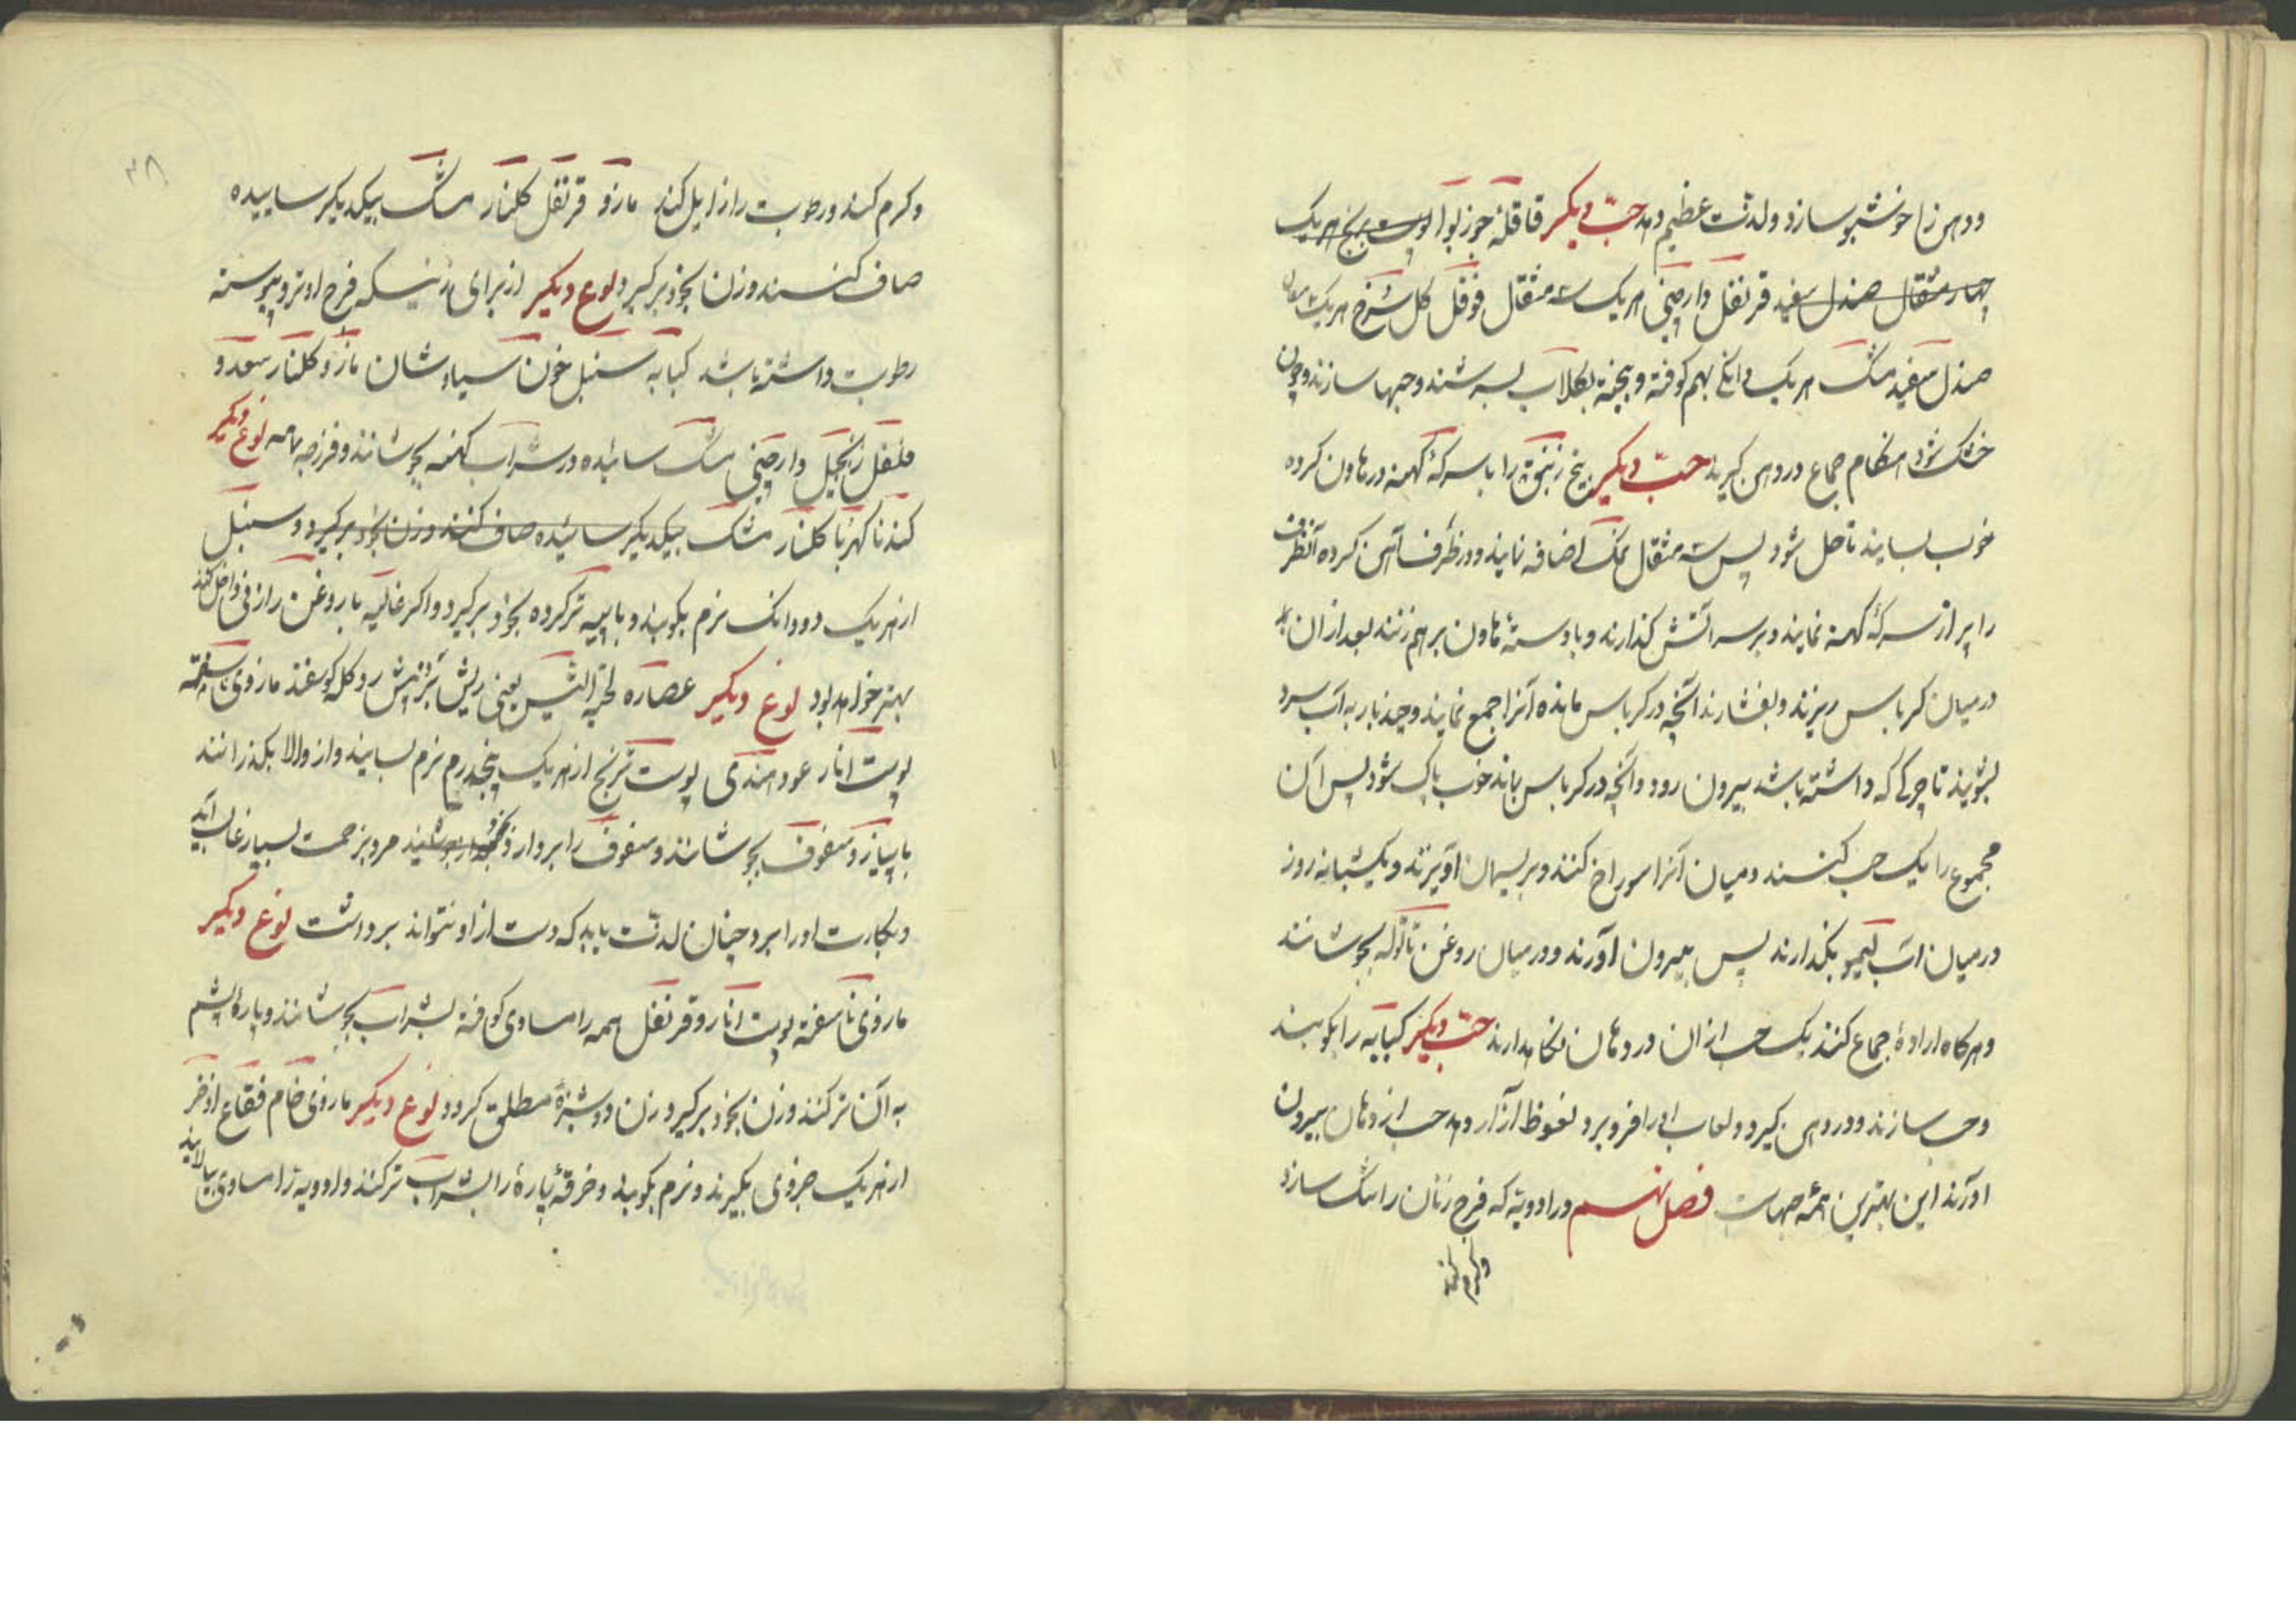 ودهن را خوشبو سازد ولذت عظیم دهد حبّ دیگر قاقله جوزبوا پوست ترنج هریک
چهار مثقال صندل سفید قرنفل دارچینی هریک سه مثقال فوفل گل سرخ هریک
صندل سفید مشک هریک دانگی بهم کوفته و بیخته بگلاب بسرشند و حبها سازند و چون
خشک شود هنگام جماع در دهن گیرند حبّ دیگر بیخ زنبق را با سرکهٔ کهنه در هاون کرده
خوب بسایند تا حل شود پس سه مثقال نمک اضافه نمایند و در ظرف آهن کرده آنظرف
را پر از سرکهٔ کهنه نمایند و بر سر آتش گذارند و با دستهٔ هاون بر هم زنند بعد از آن
در میان کرباس ریزند و بفشارند آنچه در کرباس مانده آنرا جمع نمایند و چند بار به آب سرد
بشویند تا چرکی که داشته باشد بیرون رود و آنچه در کرباس بماند خوب پاک شود پس آن
مجموع را یک حب کنند و میان آنرا سوراخ کنند و بریسمان آویزند و یک شبانه روز
در میان آب لیمو بگذارند پس بیرون آورند و در میان روغن تاتوله بجوشانند
و هرگاه ارادهٔ جماع کنند یک حب از آن در دهان نگاهدارند حبّ دیگر کبابه را بکوبند
و حب سازند و در دهن گیرد و لعاب او را فرو برد نعوظ آرد حب از دهان بیرون
آورند این بهترین همهٔ حبهاست فصل نهم در ادویهٔ که فرج زنان را تنگ سازد
و گرم کند
۳۸
و گرم کند و رطوبت را زایل کند مازو قرنفل گلنار مشک بیکدیگر ساییده
صاف کنند و زن بخود برگیرد نوع دیگر از برای زنیکه فرج او تر و پیوسته
رطوبت داشته باشد کبابه سنبل خون سیاوشان مازو گلنار سعد و
فلفل زنجبیل دارچینی مشک سائیده در شراب کهنه بجوشانند و فرزجه نوع دیگر
کندنا کهربا گلنار مشک بیکدیگر سائیده صاف کنند و زن بخود برگیرد و سنبل
از هریک دو دانگ نرم بکوبند و با پیه تر کرده بخود برگیرد و اگر غالیه با روغن رازقی داخل کنند
بهتر خواهد بود نوع دیگر عصاره لحیة التیس یعنی ریش بز پشم دو کله گوسفند مازوی ناسفته
پوست انار عود هندی پوست ترنج از هریک پنجدرم نرم بسایند و از والا بگذرانند
با پیاز و سفوف بجوشانند و سفوف را بردارند مرد بزحمت بسیار غالب آید
و بکارت او را برد چنان لذت یابد که دست از او نتواند برداشت نوع دیگر
مازوی ناسفته پوست انار و قرنفل همه را مساوی کوفته بشراب بجوشانند و پارهٔ پشم
به آن تر کنند و زن بخود برگیرد زن دوشیزهٔ مطلق گردد نوع دیگر مازوی خام فقاع اذخر
از هریک جزوی بگیرند و نرم بکوبند و خرقهٔ پارهٔ را بشراب تر کنند و ادویه را مساوی بیالایند